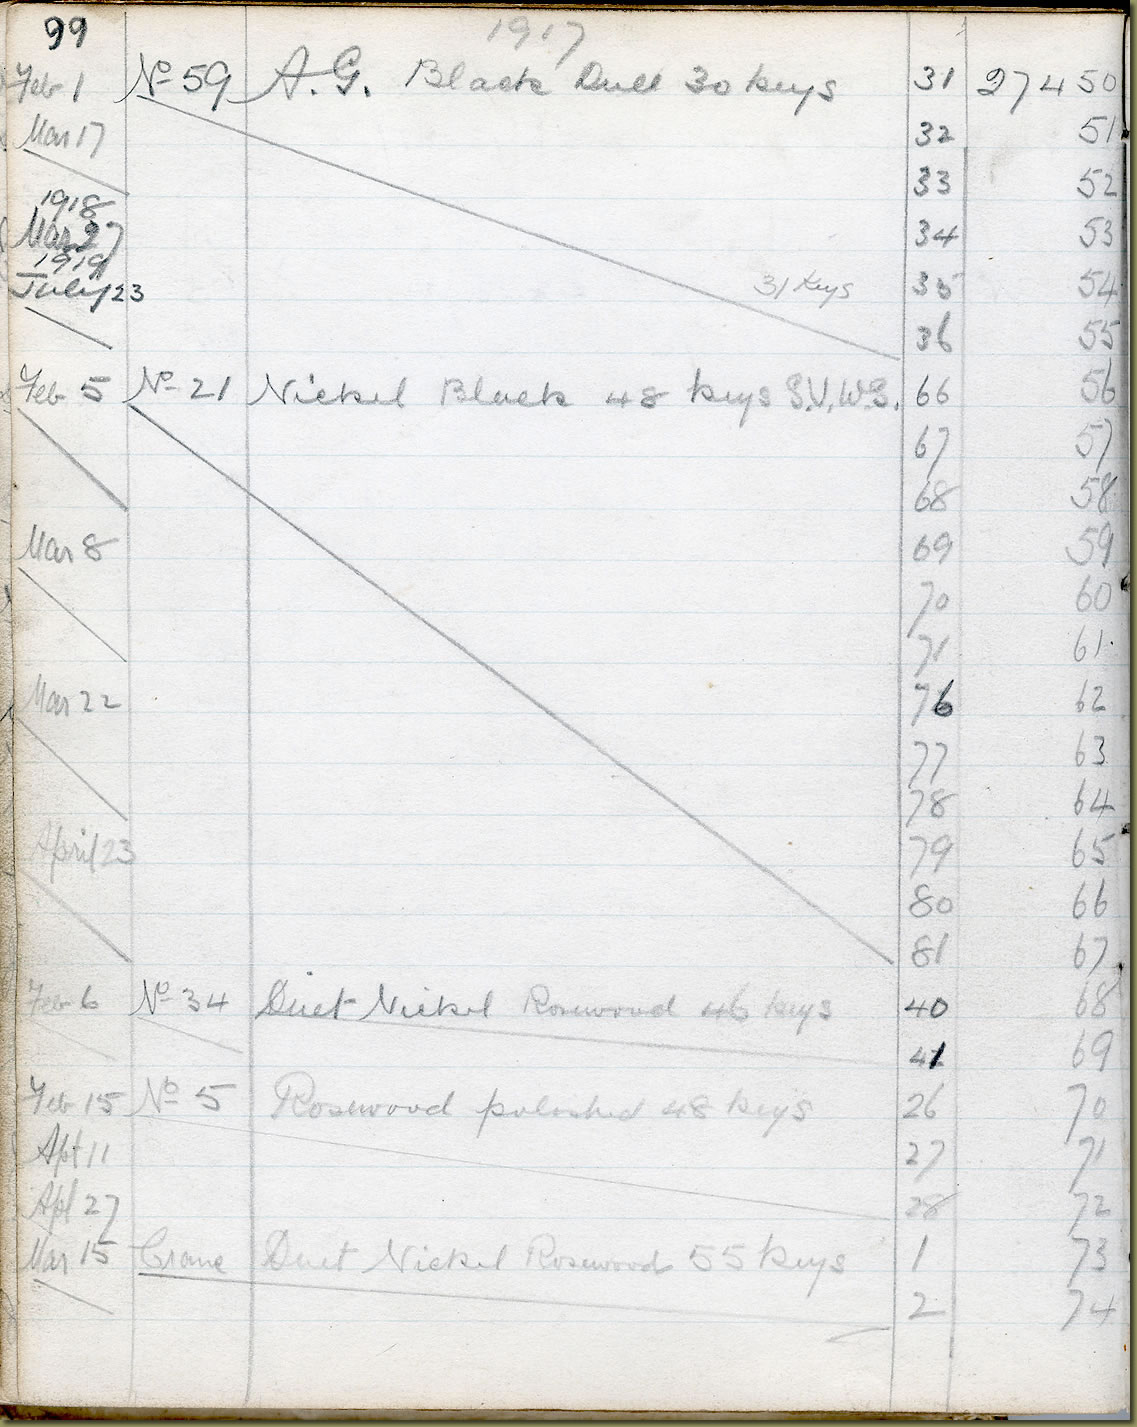 99
1917
Feb 1 No 59 A.G. Black Dull 30 keys 31 27450
Mar 17 32 51
33 52
1918
Mar 27 34 53
1919
July 23 31 Keys 35 54
36 55
Feb 5 No 21 Nickel Black 48 keys S.V.W.G. 66 56
67 57
68 58
Mar 8 69 59
70 60
71 61
Mar 22 76 62
77 63
78 64
April 23 79 65
80 66
81 67
Feb 6 No 34 Duet Nickel Rosewood 46 keys 40 68
41 69
Feb 15 No 5 Rosewood polished 48 keys 26 70
Apl 11 27 71
Apl 27 28 72
Mar 15 Crane Duet Nickel Rosewood 55 keys 1 73
2 74